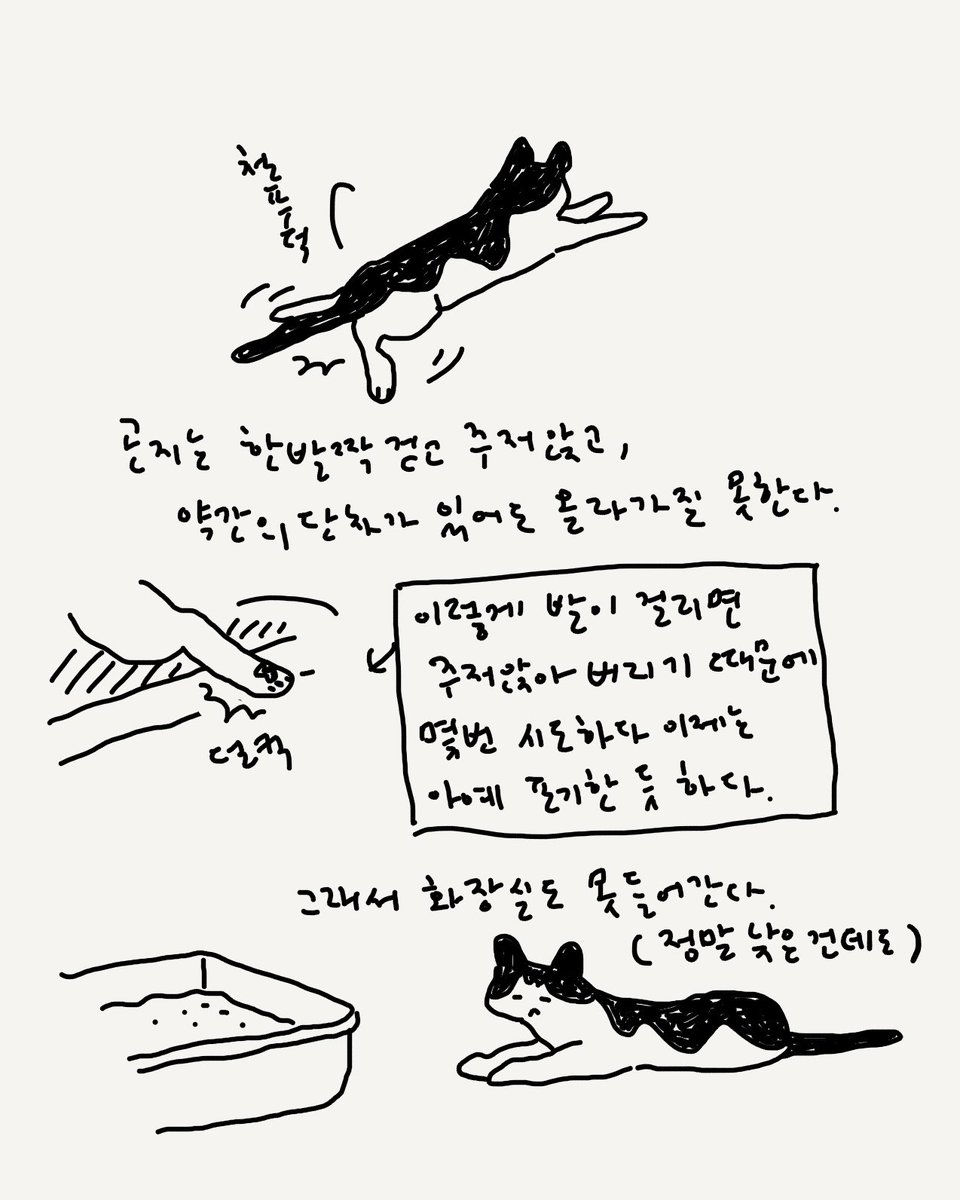 철푸덕
곤지는 한발짝 걷고 주저앉고,
약간의 단차가 있어도 올라가질 못한다.
이렇게 발이 걸리면
주저앉아 버리기 때문에
몇번 시도하다 이제는
아예 포기한 듯 하다.
덜컥
그래서 화장실도 못들어간다.
(정말 낮은건데도)